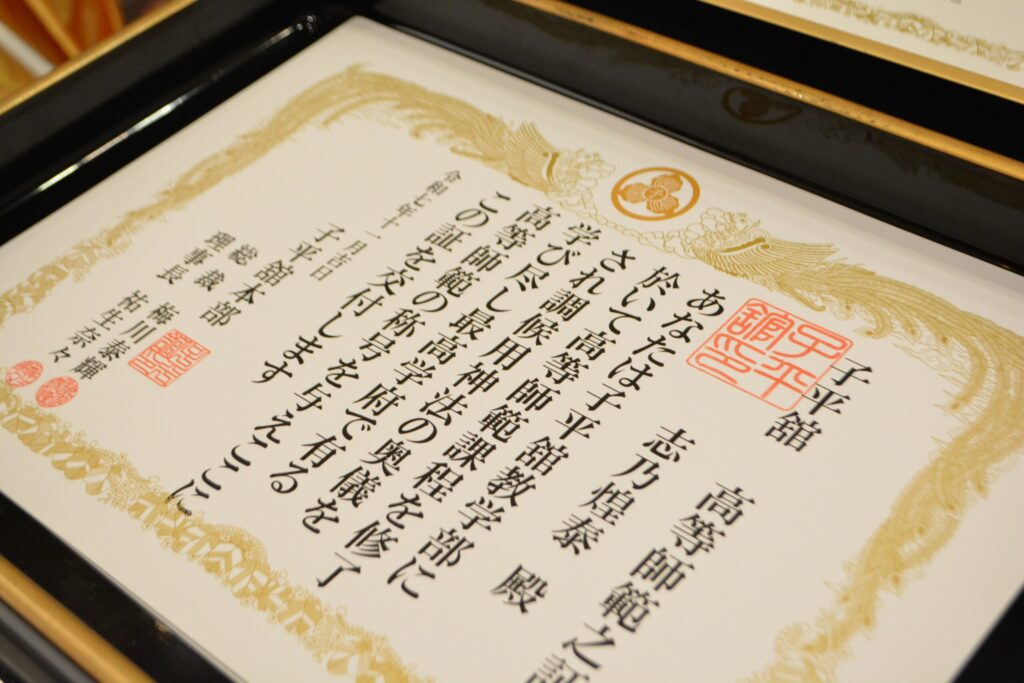 子平舘 高等師範之証
志乃煌泰 殿
あなたは子平舘教学部に
於いて高等師範課程を修了
され調候用神法の奥儀を
学び尽し最高学府で有る
高等師範の称号を与えここに
この証を交付します
令和七年十一月吉日
子平舘本部
総裁 梅川泰輝
理事長 祐生奈々
子平舘印